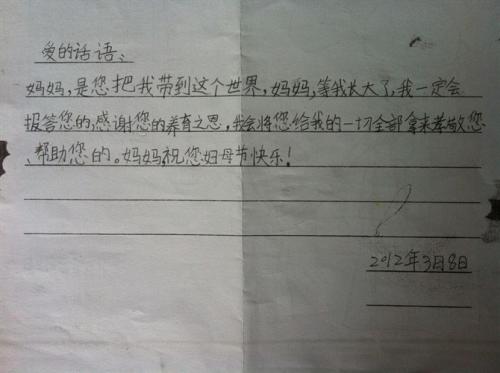 爱的话语:
妈妈,是您把我带到这个世界,妈妈,等我长大了,我一定会
报答您的,感谢您的养育之恩,我会将您给我的一切全部拿来孝敬您
、帮助您的。妈妈,祝您妇母节快乐!
2012年3月8日